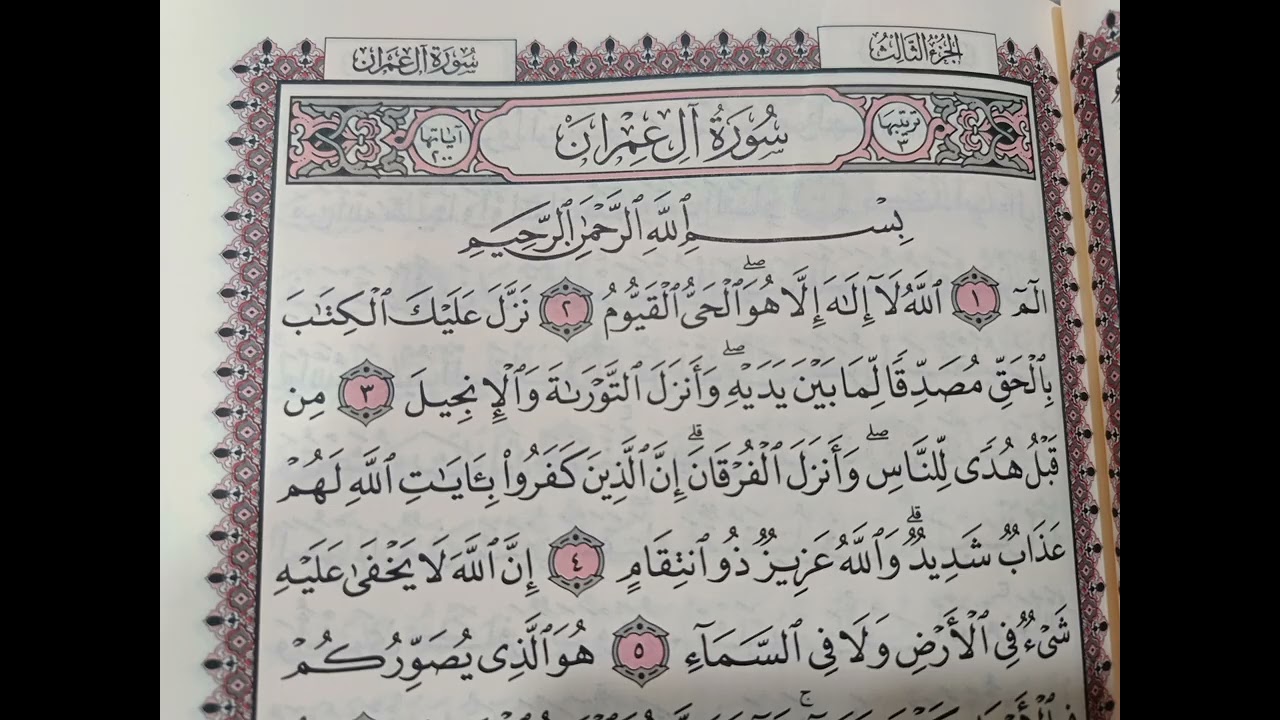 الجزء الثالث
سورة آل عمران
ترتيبها ٣
سُورَةُ آلِ عِمْرَانَ
آياتها ٢٠٠
بِسْمِ ٱللَّهِ ٱلرَّحْمَٰنِ ٱلرَّحِيمِ
الٓمٓ ١ ٱللَّهُ لَآ إِلَٰهَ إِلَّا هُوَۖ ٱلْحَىُّ ٱلْقَيُّومُ ٢ نَزَّلَ عَلَيْكَ ٱلْكِتَٰبَ
بِٱلْحَقِّ مُصَدِّقًا لِّمَا بَيْنَ يَدَيْهِۖ وَأَنزَلَ ٱلتَّوْرَىٰةَ وَٱلْإِنجِيلَ ٣ مِن
قَبْلُ هُدًى لِّلنَّاسِۖ وَأَنزَلَ ٱلْفُرْقَانَۗ إِنَّ ٱلَّذِينَ كَفَرُوا۟ بِـَٔايَٰتِ ٱللَّهِ لَهُمْ
عَذَابٌ شَدِيدٌۗ وَٱللَّهُ عَزِيزٌ ذُو ٱنتِقَامٍ ٤ إِنَّ ٱللَّهَ لَا يَخْفَىٰ عَلَيْهِ
شَىْءٌ فِى ٱلْأَرْضِ وَلَا فِى ٱلسَّمَآءِ ٥ هُوَ ٱلَّذِى يُصَوِّرُكُمْ